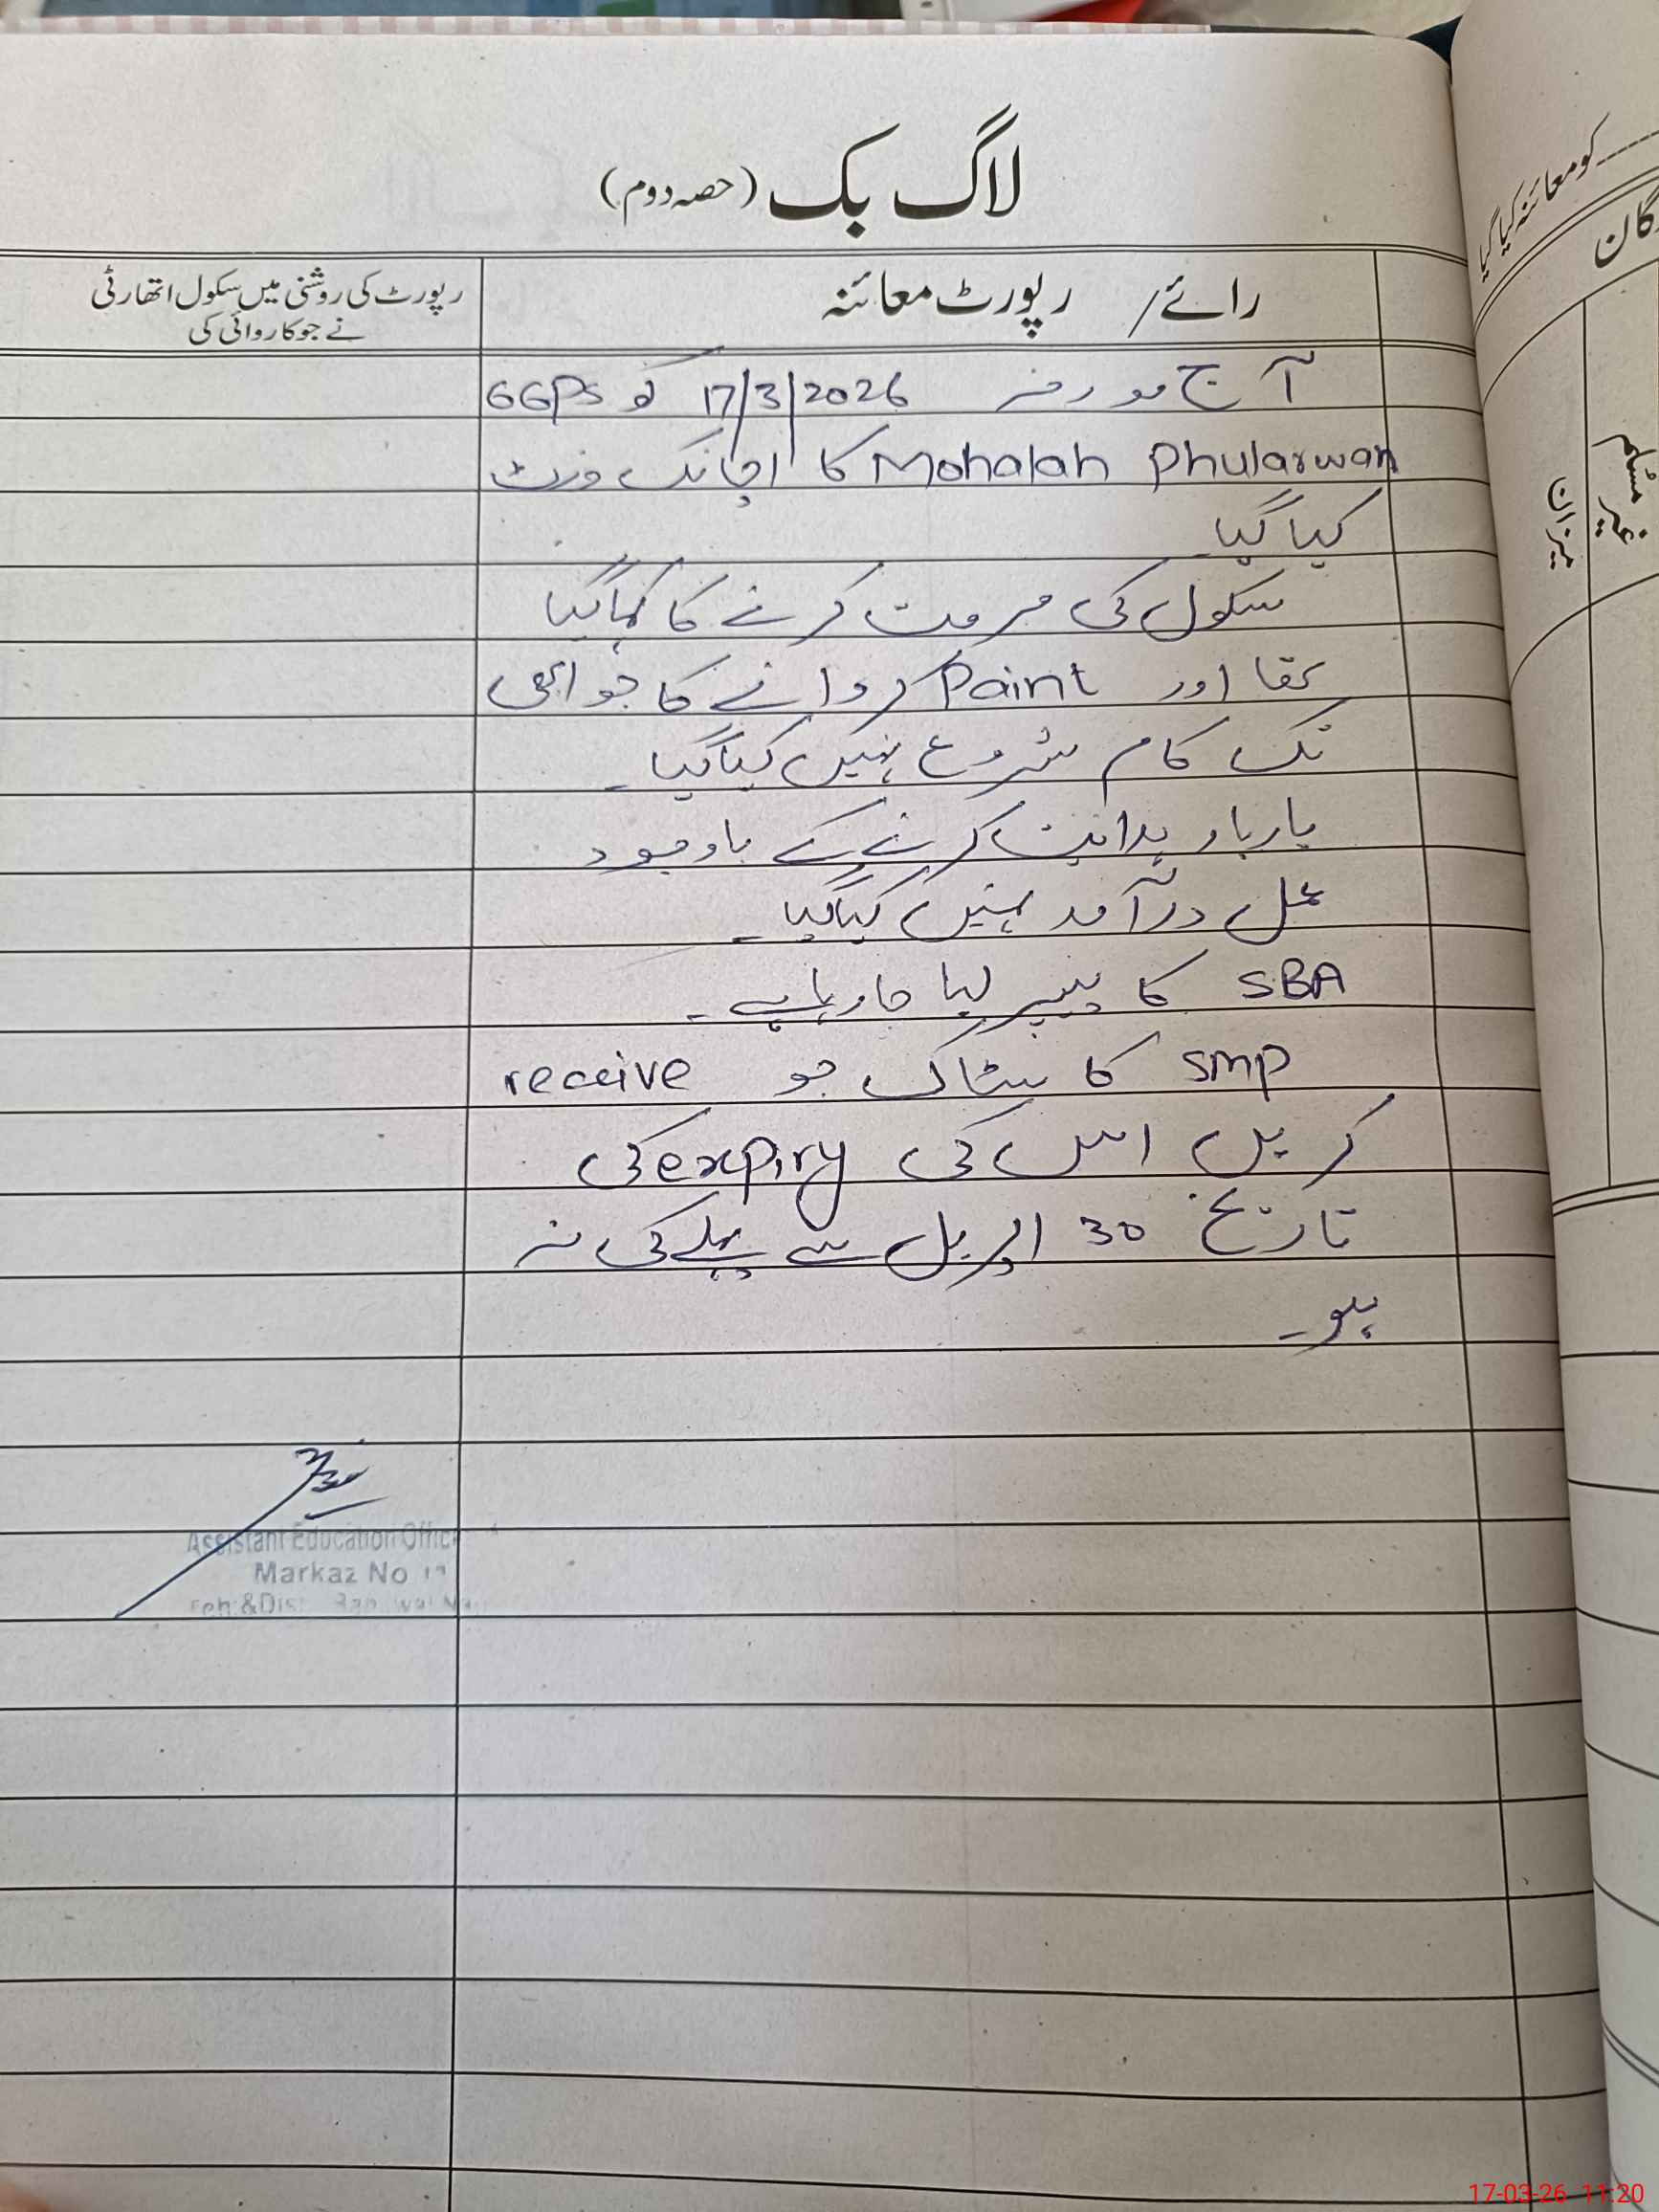 لاگ بک (حصہ دوم)
رائے / رپورٹ معائنہ
رپورٹ کی روشنی میں سکول اتھارٹی
نے جو کاروائی کی
آج مورخہ 17/3/2026 کو GGPS
Mohalah Phularwan کا اچانک وزٹ
کیا گیا۔
سکول کی مرمت کرنے کا کہا گیا
تھا اور Paint کروانے کا جو ابھی
تک کام شروع نہیں کیا گیا۔
بار بار ہدایت کرنے کے باوجود
عمل درآمد نہیں کیا گیا۔
SBA کا پیپر لیا جا رہا ہے۔
SMP کا سٹاک جو receive
کریں اس کی expiry کی
تاریخ 30 اپریل سے پہلے کی نہ
ہو۔
Assistant Education
Markaz No
کو معائنہ کیا گیا
غیر مسلم
میزان
17-03-26 11:20